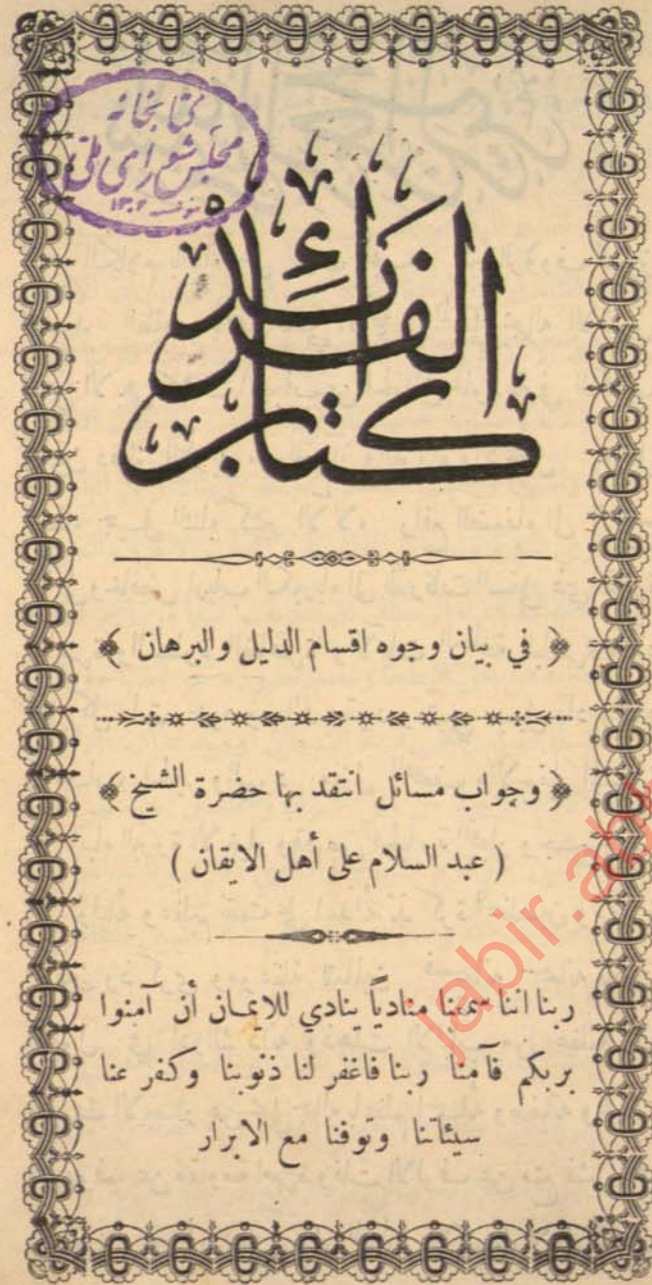 کتابخانه
مجلس شورای ملی
۱۳۰۲
كتاب الفرائد
﴿ في بيان وجوه اقسام الدليل والبرهان ﴾
﴿ وجواب مسائل انتقد بها حضرة الشيخ ﴾
( عبد السلام على أهل الايقان )
ربنا اننا سمعنا منادياً ينادي للايمان أن آمنوا
بربكم فآمنا ربنا فاغفر لنا ذنوبنا وكفر عنا
سيئاتنا وتوفنا مع الابرار
jabir.ab